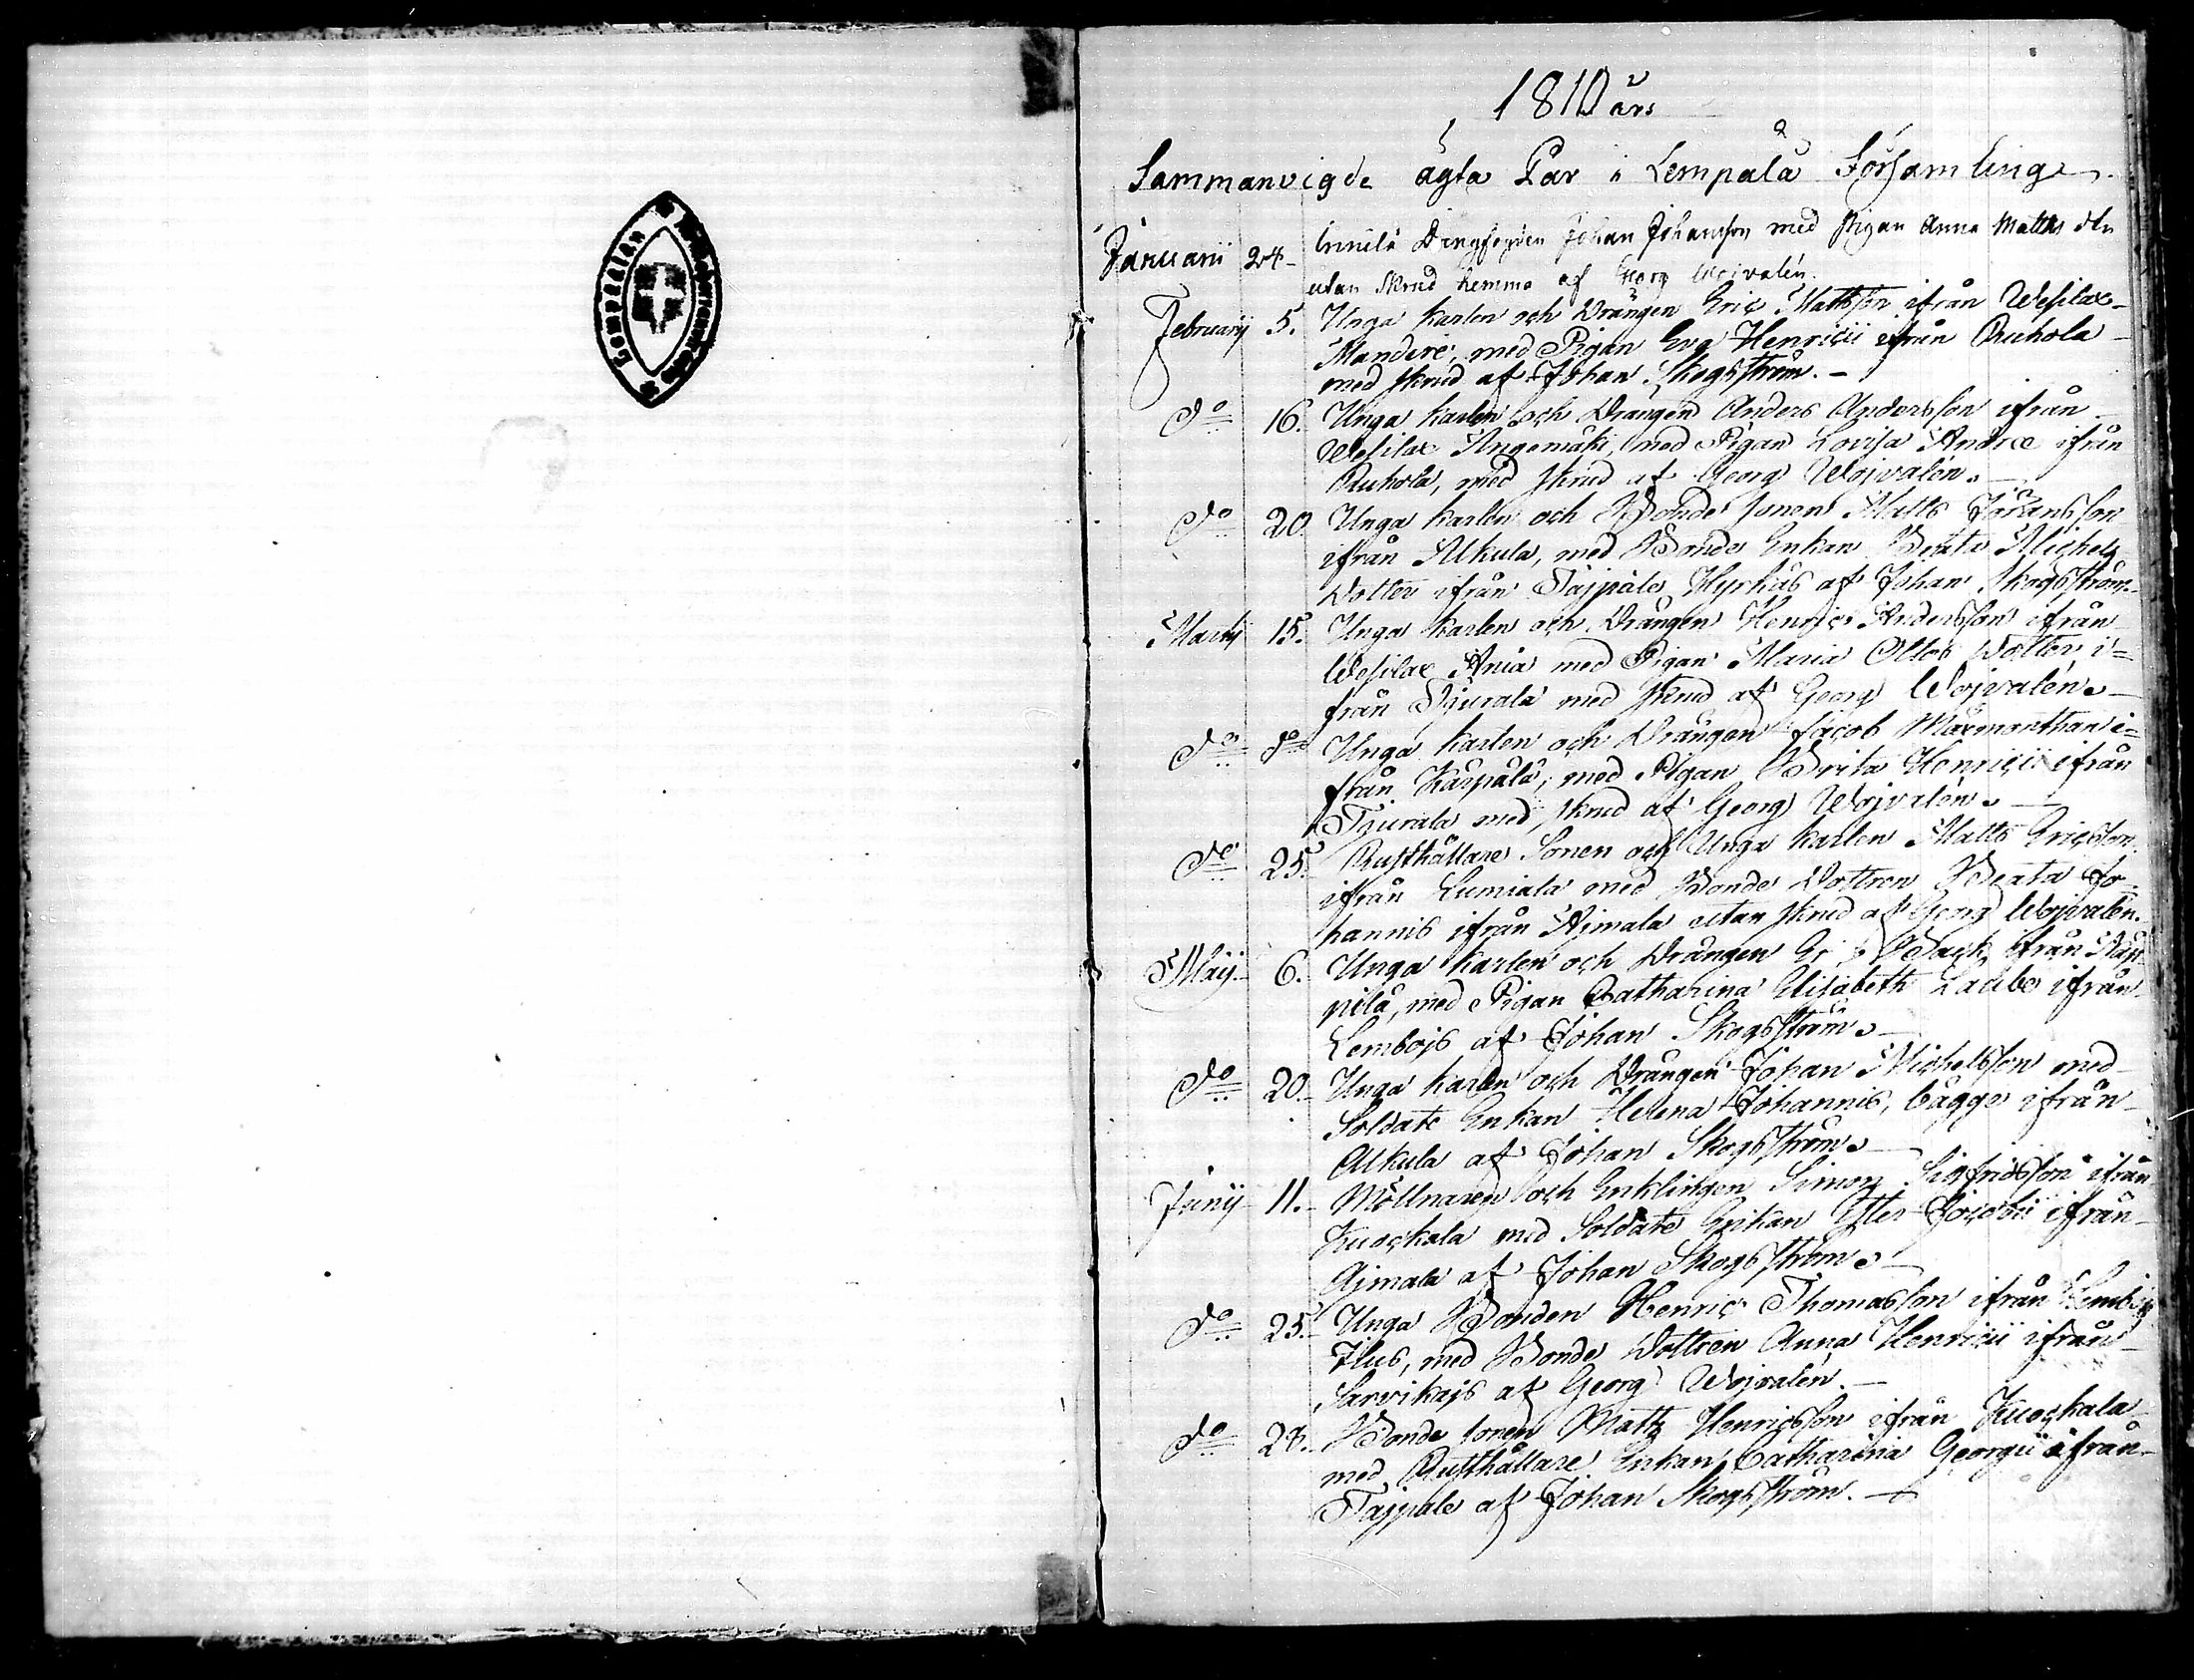 1810 års
Sammanvigde ägta Par i Lempälä Församlinge.
Januarii 24- Dräng Johan Johansson med Pigan Anna Matths dtr
utan skrud hemma af Georg Wojvalén.
Februarij 5. Unga karlen och Drängen Eric Mattsson ifrån Wesilax
Mandere, med Pigan Eva Henricii ifrån Ruhola
med skrud af Johan Skogsström.-
do 16. Unga karlen och Drängen Anders Andersson ifrån
Wesilax Angemäki, med Pigan Lovisa Andræ ifrån
Ruhola, med skrud af Georg Wojvalén.
do 20. Unga karlen och Bonde sonen Matts Göransson
ifrån Alkula, med Bonde Enkan Beata Michels
Dotter ifrån Tajpale Hyrkäs af Johan Skogsström.
Martij 15. Unga karlen och Drängen Henric Andersson ifrån
Wesilax Ania med Pigan Maria Ottos Dotter i=
från Tjurala med skrud af Georg Wojvalén.
do do Unga karlen och Drängen Jacob i=
från Käspälä, med Pigan Brita Henricii ifrån
Tjurala med skrud af Georg Wojvalén.
do 25. Rusthållare Sonen och Unga karlen Matts Ericsson
ifrån Lumiala med Bonde Dottren Beata Jo-
hannis ifrån Ajmala utan skrud af Georg Wojvalén.
Maij 6. Unga karlen och Drängen ifrån
pilä, med Pigan Catharina Elisabeth Laube ifrån
Lembois af Johan Skogsström.
do 20. Unga karlen och Drängen Johan Michelsson med
Soldate Enkan Helena Johannis, bägge ifrån
Alkula af Johan Skogsström.
Junij 11. Möllnaren och Enklingen Simon Sigfridsson ifrån
Kuockala med Soldate Enkan Ester Jacobii ifrån
Ajmala af Johan Skogsström.
do 25. Unga Bonden Henric Thomasson ifrån
med Bonde Dottren Anna Henricii ifrån
Sarvikajs af Georg Wojvalén.-
do 28. Bonde sonen Matts Henricsson ifrån Kuockala
med Rusthållare Enkan Catharina Georgii ifrån
Tajpale af Johan Skogsström.